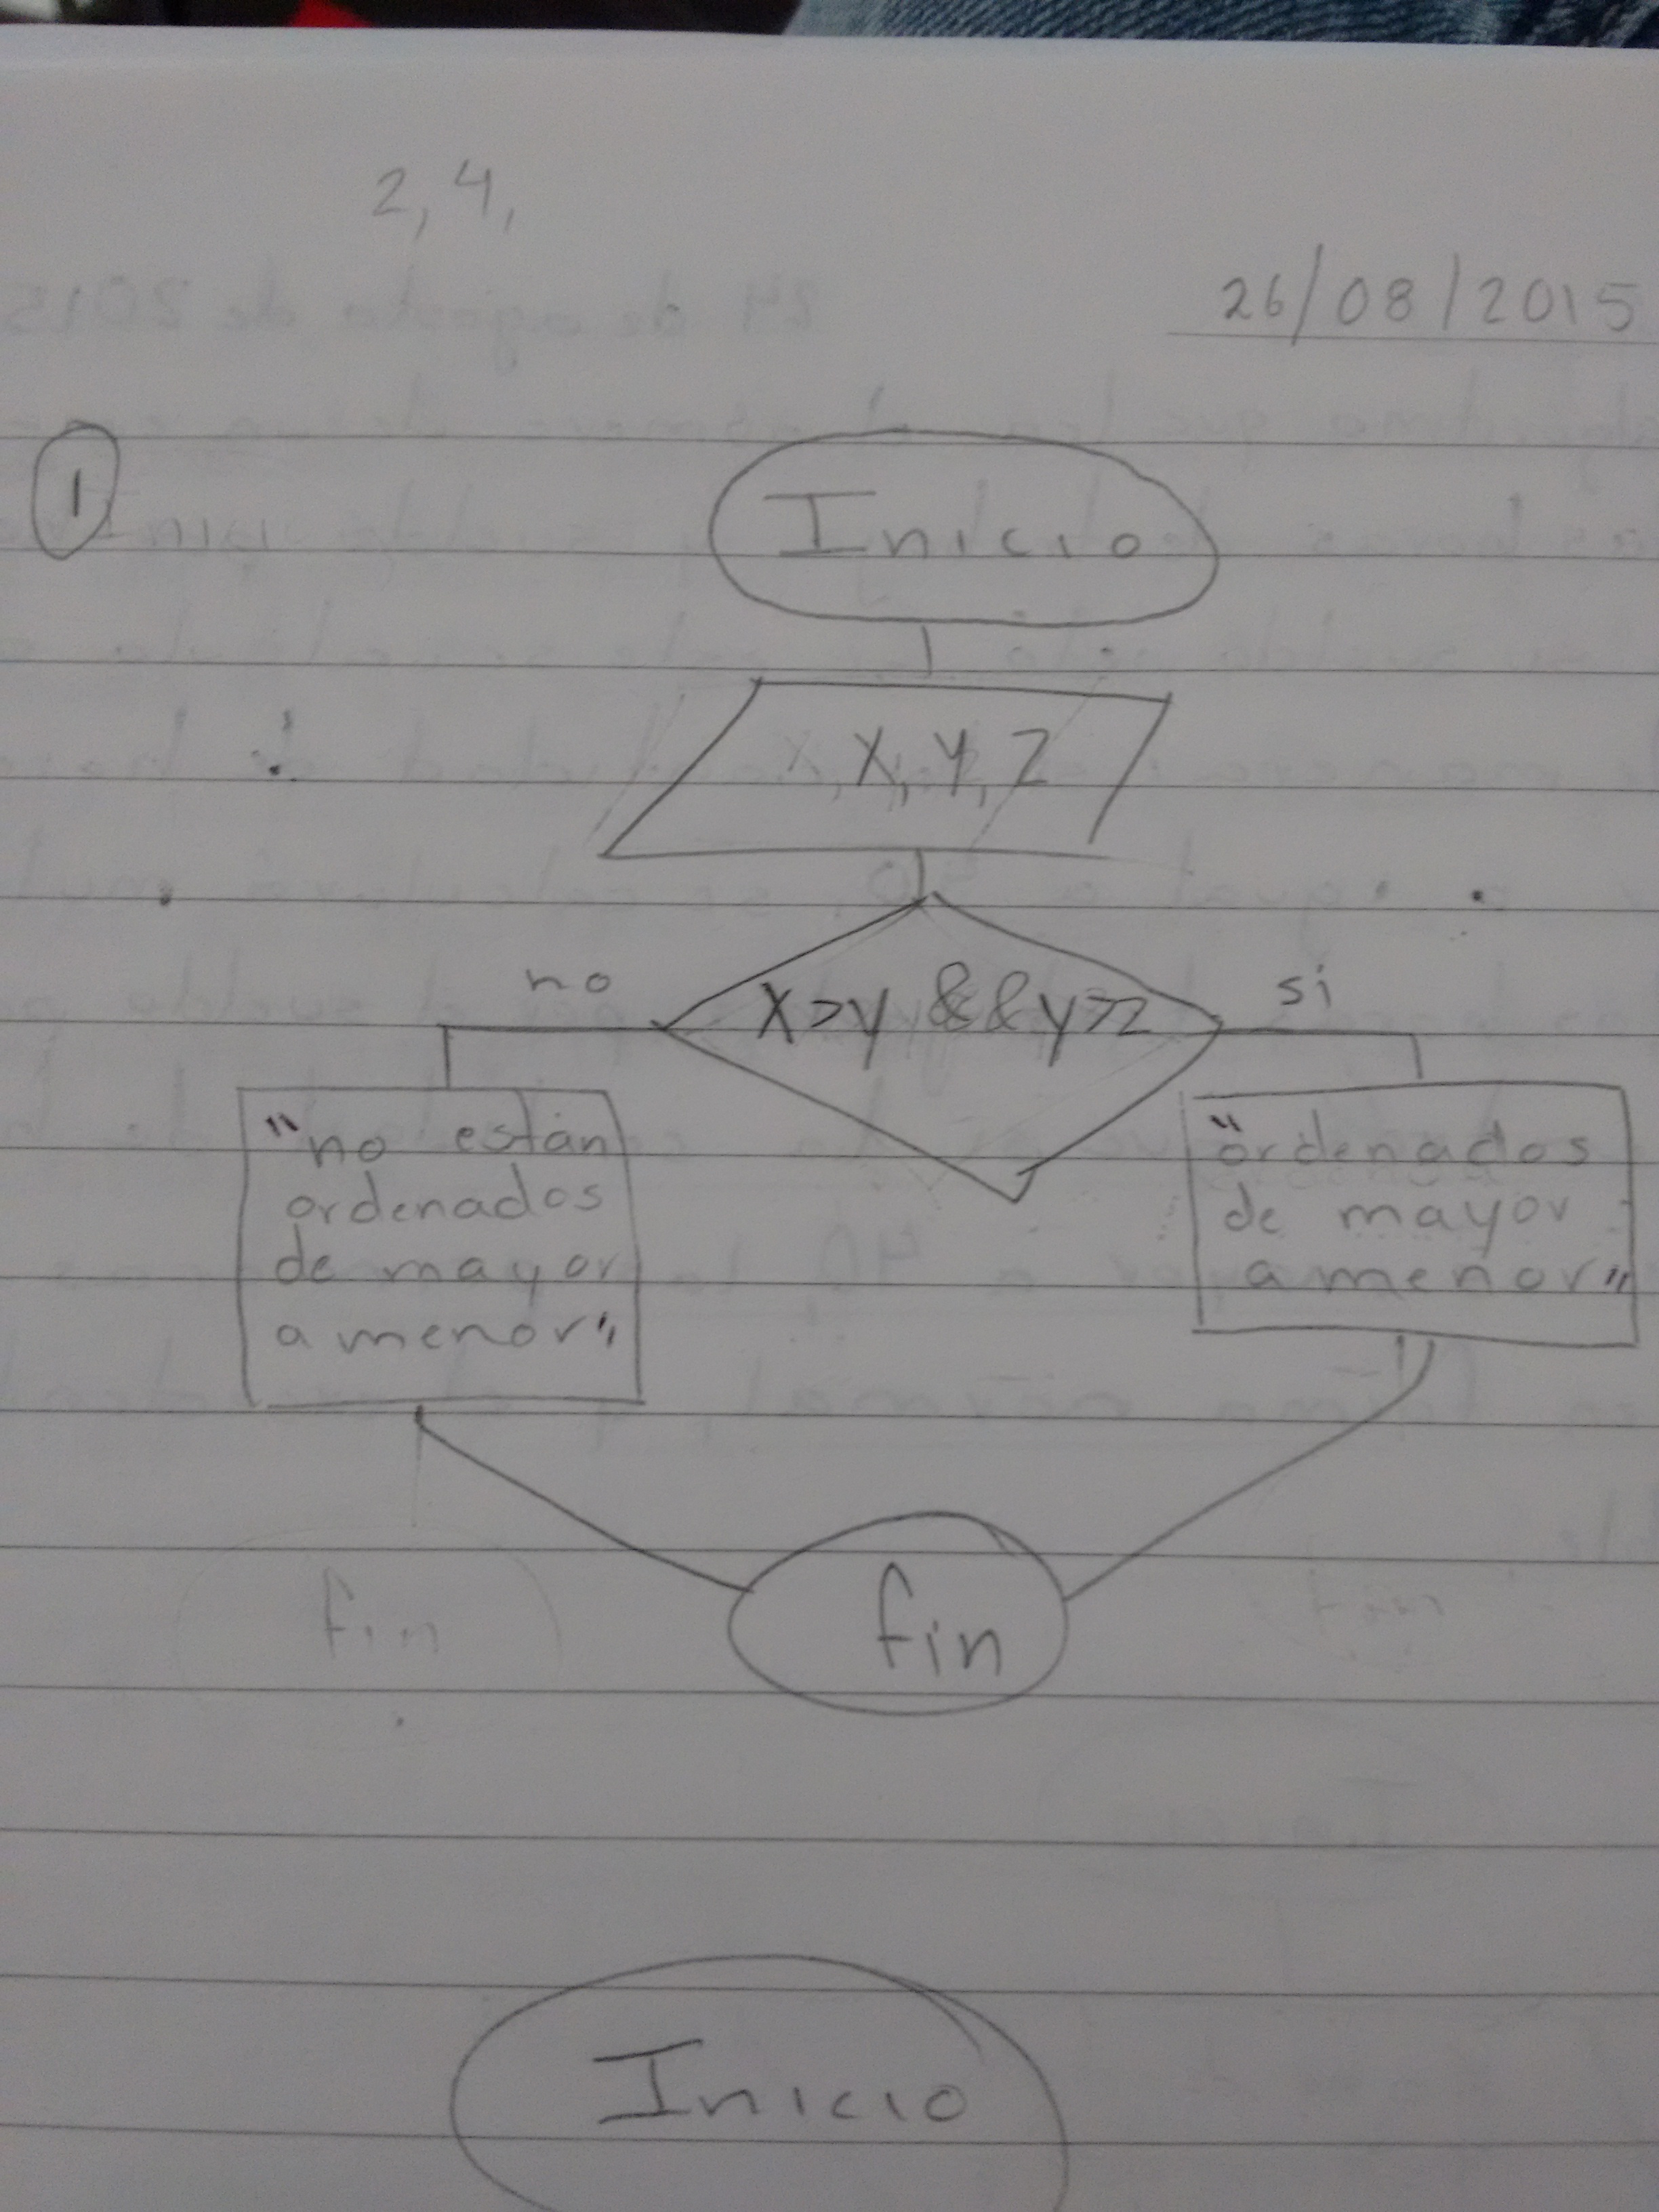 2, 4,
26/08/2015
1
Inicio
x, y, z
x>y && y>z
no
si
"no están
ordenados
de mayor
a menor"
"ordenados
de mayor
a menor"
fin
fin
Inicio